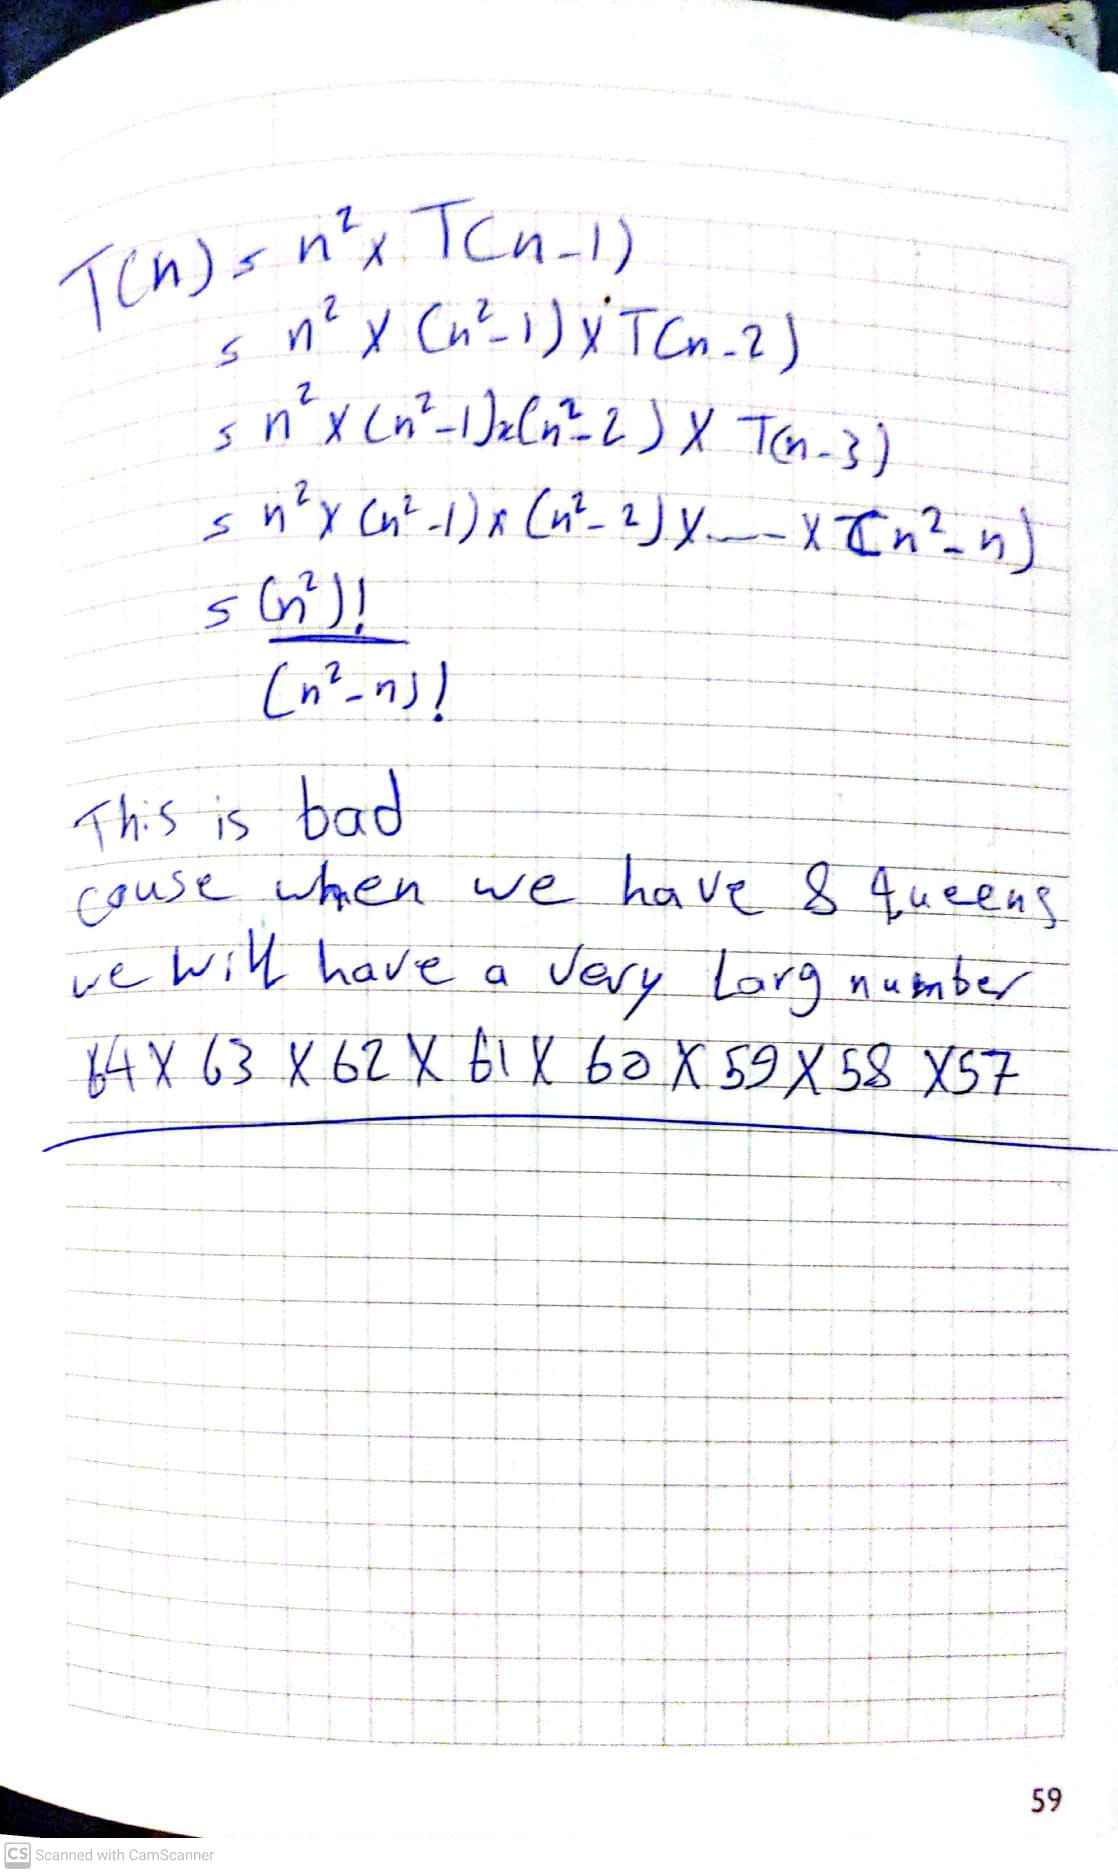 T(n) = n² x T(n-1)
= n² x (n²-1) x T(n-2)
= n² x (n²-1) x (n²-2) x T(n-3)
= n² x (n²-1) x (n²-2) x ---- x (n²-n)
= (n²)!
(n²-n)!
This is bad
cause when we have 8 queens
we will have a very Larg number
64 x 63 x 62 x 61 x 60 x 59 x 58 x 57
59
CS Scanned with CamScanner